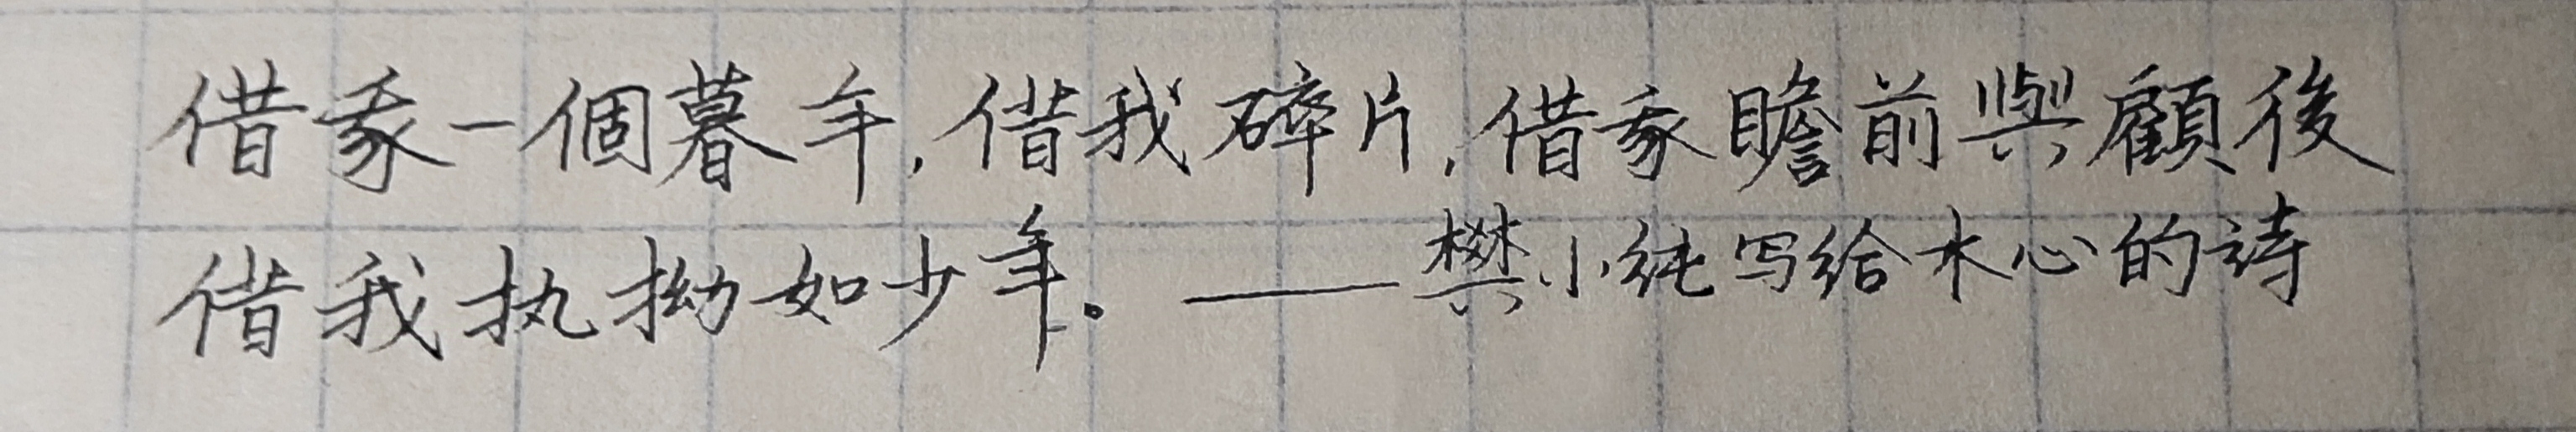 借我一個暮年,借我碎片,借我瞻前與顧後
借我执拗如少年。——樊小纯写给木心的诗